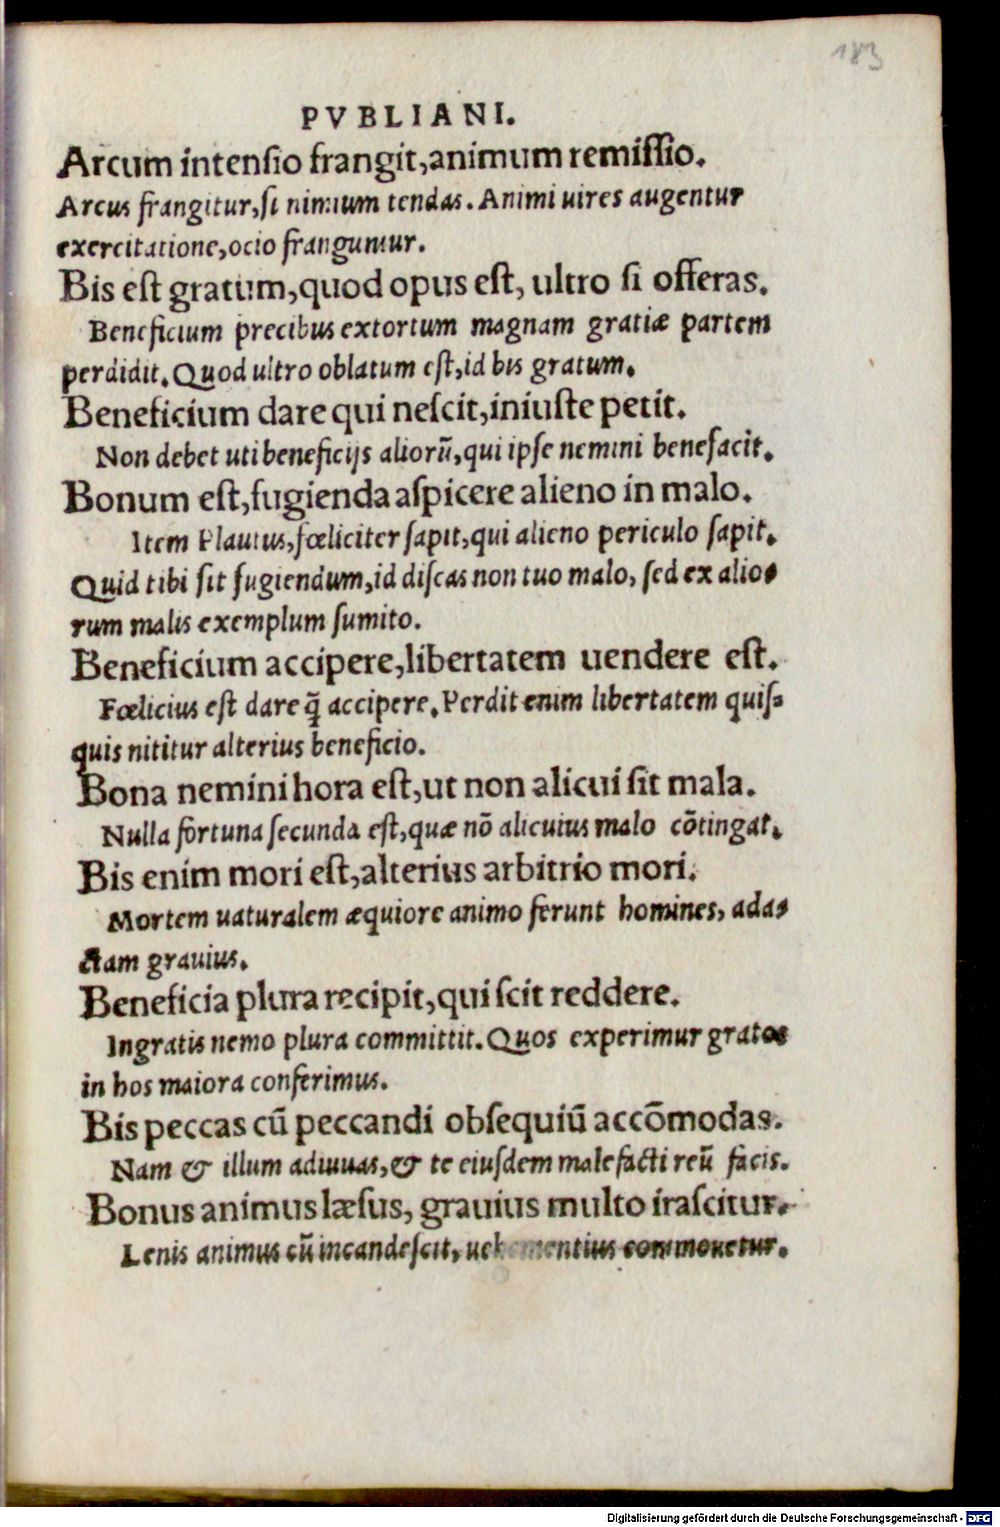 183
PVBLIANI.
Arcum intensio frangit,animum remiſſio.
Arcus frangitur,ſi nimium tendas. Animi uires augentur
exercitatione,ocio franguntur.
Bis eſt gratum,quod opus eſt, ultro ſi offeras.
Beneficium precibus extortum magnam gratiæ partem
perdidit. Quod ultro oblatum eſt,id bis gratum.
Beneficium dare qui neſcit,iniuſte petit.
Non debet uti beneficijs aliorũ,qui ipſe nemini benefacit.
Bonum eſt,fugienda aſpicere alieno in malo.
Item Plautus,fœliciter ſapit,qui alieno periculo ſapit.
Quid tibi ſit fugiendum,id diſcas non tuo malo, ſed ex alio⸗
rum malis exemplum ſumito.
Beneficium accipere,libertatem uendere eſt.
Fœlicius eſt dare q̃ accipere. Perdit enim libertatem quiſ⸗
quis nititur alterius beneficio.
Bona nemini hora eſt,ut non alicui ſit mala.
Nulla fortuna ſecunda eſt,quæ nõ alicuius malo cõtingat.
Bis enim mori eſt,alterius arbitrio mori.
Mortem naturalem æquiore animo ferunt homines, ada⸗
ctam grauius.
Beneficia plura recipit,qui ſcit reddere.
Ingratis nemo plura committit. Quos experimur gratos
in hos maiora conferimus.
Bis peccas cũ peccandi obſequiũ accõmodas.
Nam & illum adiuuas,& te eiuſdem malefacti reũ facis.
Bonus animus læſus, grauius multo iraſcitur.
Lenis animus cũ incandeſcit, uehementius commouetur.
Digitalisierung gefördert durch die Deutsche Forschungsgemeinschaft - DFG